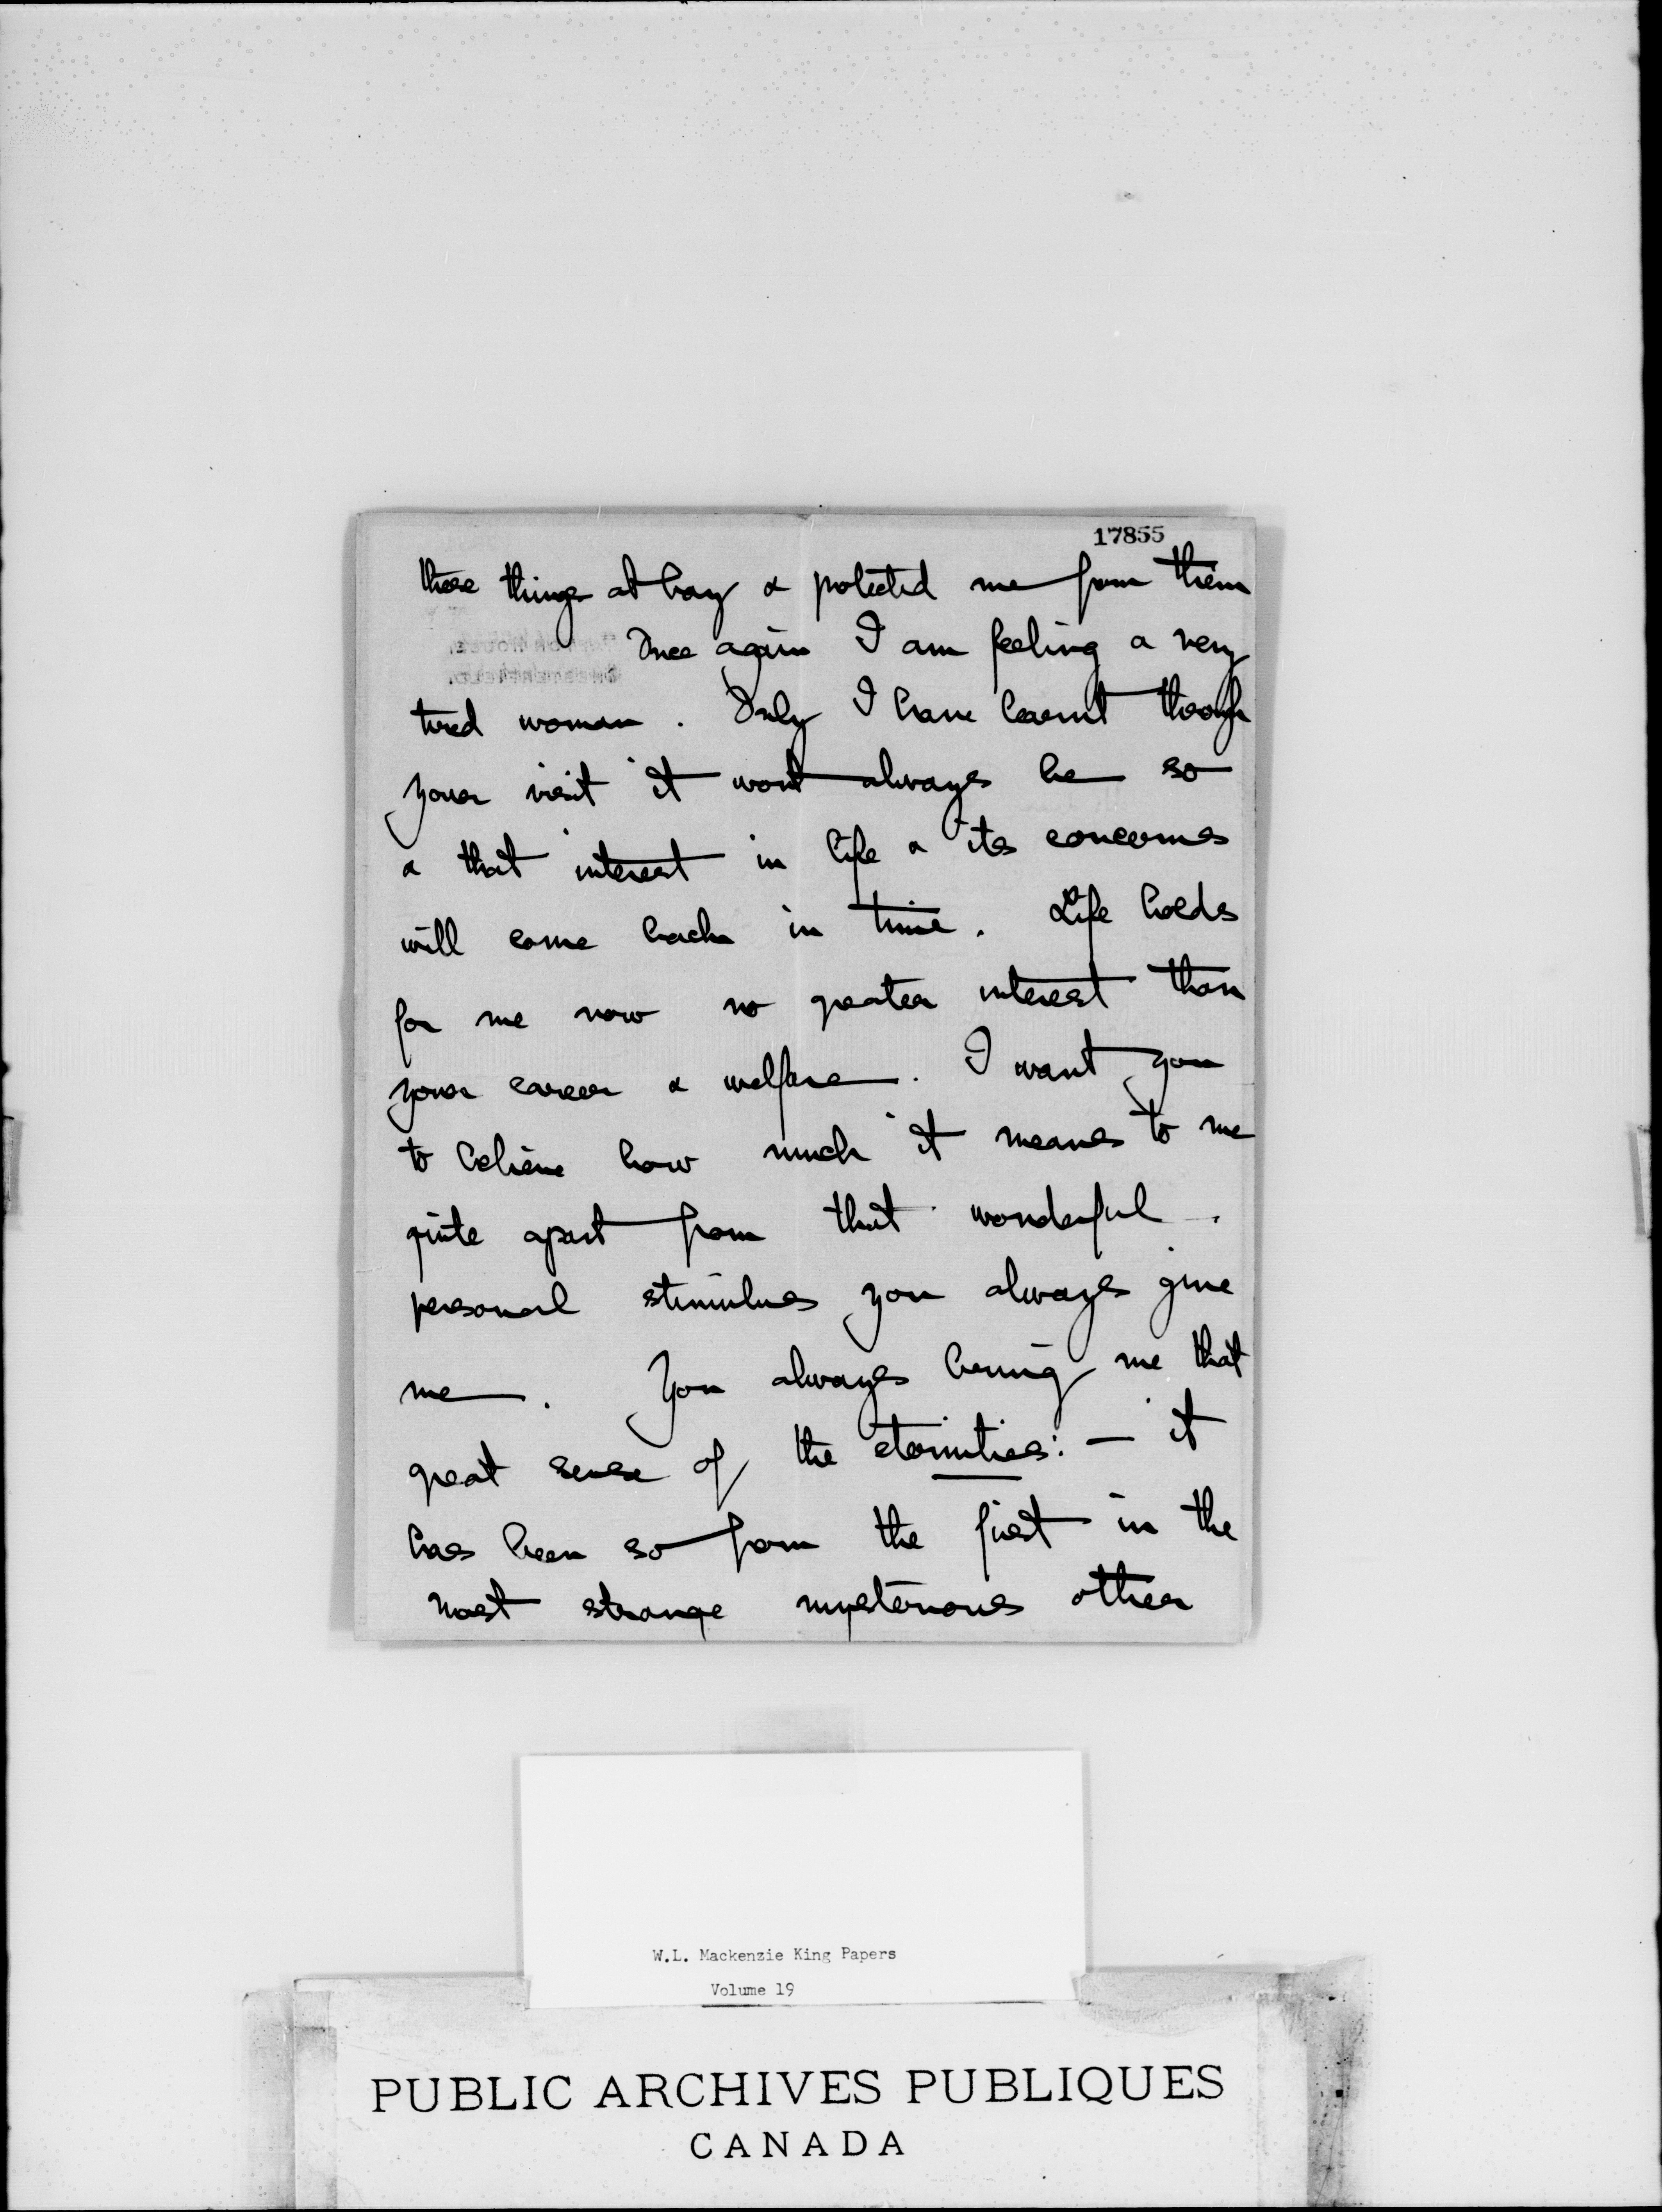 17855
these things at bay & protected me from them
Once again I am feeling a very
tired woman. Only I have learnt through
your visit it wont always be so
& that interest in life & its concerns
will come back in time. Life holds
for me now no greater interest than
your career & welfare. I want you
to believe how much it means to me
quite apart from that wonderful
personal stimulus you always give
me. You always bring me that
great sense of the eternities: — it
has been so from the first in the
most strange mysterious other
W.L. Mackenzie King Papers
Volume 19
PUBLIC ARCHIVES PUBLIQUES
CANADA